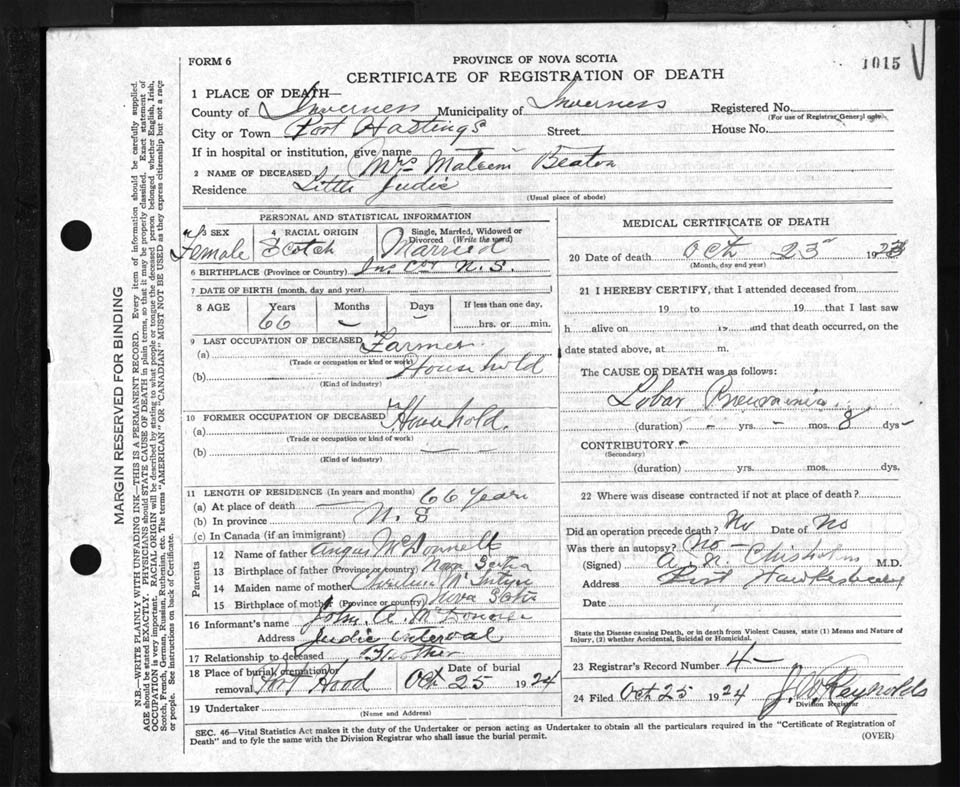 FORM 6
PROVINCE OF NOVA SCOTIA
1015
CERTIFICATE OF REGISTRATION OF DEATH
1 PLACE OF DEATH—
County of Inverness Municipality of Inverness Registered No.
(For use of Registrar General only)
City or Town Port Hastings Street House No.
If in hospital or institution, give name
2 NAME OF DECEASED Mrs Beaton
Residence Little Judic
(Usual place of abode)
PERSONAL AND STATISTICAL INFORMATION
SEX 4 RACIAL ORIGIN Single, Married, Widowed or Divorced (Write the word)
Female Scotch Married
6 BIRTHPLACE (Province or Country) Inv Co. N.S.
7 DATE OF BIRTH (month, day and year)
8 AGE Years Months Days If less than one day,
66 – – hrs. or min.
9 LAST OCCUPATION OF DECEASED
(a) Farmer
(Trade or occupation or kind of work)
(b) Household
(Kind of industry)
10 FORMER OCCUPATION OF DECEASED
(a) Household
(Trade or occupation or kind of work)
(b) — —
(Kind of industry)
11 LENGTH OF RESIDENCE (In years and months)
(a) At place of death — 66 Years
(b) In province N. S
(c) In Canada (if an immigrant)
Parents
12 Name of father Angus McDonnell
13 Birthplace of father (Province or country) Nova Scotia
14 Maiden name of mother McIntyre
15 Birthplace of mother (Province or country) Nova Scotia
16 Informant's name John A.
Address Judic Interval
17 Relationship to deceased Brother
18 Place of burial, cremation or removal Port Hood Date of burial Oct 25 1924
19 Undertaker
(Name and Address)
MEDICAL CERTIFICATE OF DEATH
20 Date of death Oct 23 192
(Month, day and year)
21 I HEREBY CERTIFY, that I attended deceased from
19 to 19 that I last saw
h alive on 19 and that death occurred, on the
date stated above, at m.
The CAUSE OF DEATH was as follows:
Lobar Pneumonia
(duration) – yrs. – mos. 8 dys–
CONTRIBUTORY –
(Secondary)
(duration) yrs. mos. dys.
22 Where was disease contracted if not at place of death?
Did an operation precede death? No Date of no
Was there an autopsy? no –
(Signed) Chisholm M.D.
Address Port Hawkesbury
Date
State the Disease causing Death, or in death from Violent Causes, state (1) Means and Nature of Injury, (2) whether Accidental, Suicidal or Homicidal.
23 Registrar's Record Number 4 –
24 Filed Oct 25 1924 J. W. Reynolds
Division Registrar
SEC. 46—Vital Statistics Act makes it the duty of the Undertaker or person acting as Undertaker to obtain all the particulars required in the "Certificate of Registration of
Death" and to fyle the same with the Division Registrar who shall issue the burial permit.
(OVER)
MARGIN RESERVED FOR BINDING
N.B.—WRITE PLAINLY WITH UNFADING INK—THIS IS A PERMANENT RECORD. Every item of information should be carefully supplied.
AGE should be stated EXACTLY. PHYSICIANS should STATE CAUSE OF DEATH in plain terms, so that it may be properly classified. Exact statement of
OCCUPATION is very important. RACIAL ORIGIN will be described by stating to what people or tongue the deceased person belonged whether English, Irish,
Scotch, French, German, Russian, Ruthenian, etc. The terms "AMERICAN" OR "CANADIAN" MUST NOT BE USED as they express citizenship but not a race
or people. See instructions on back of Certificate.